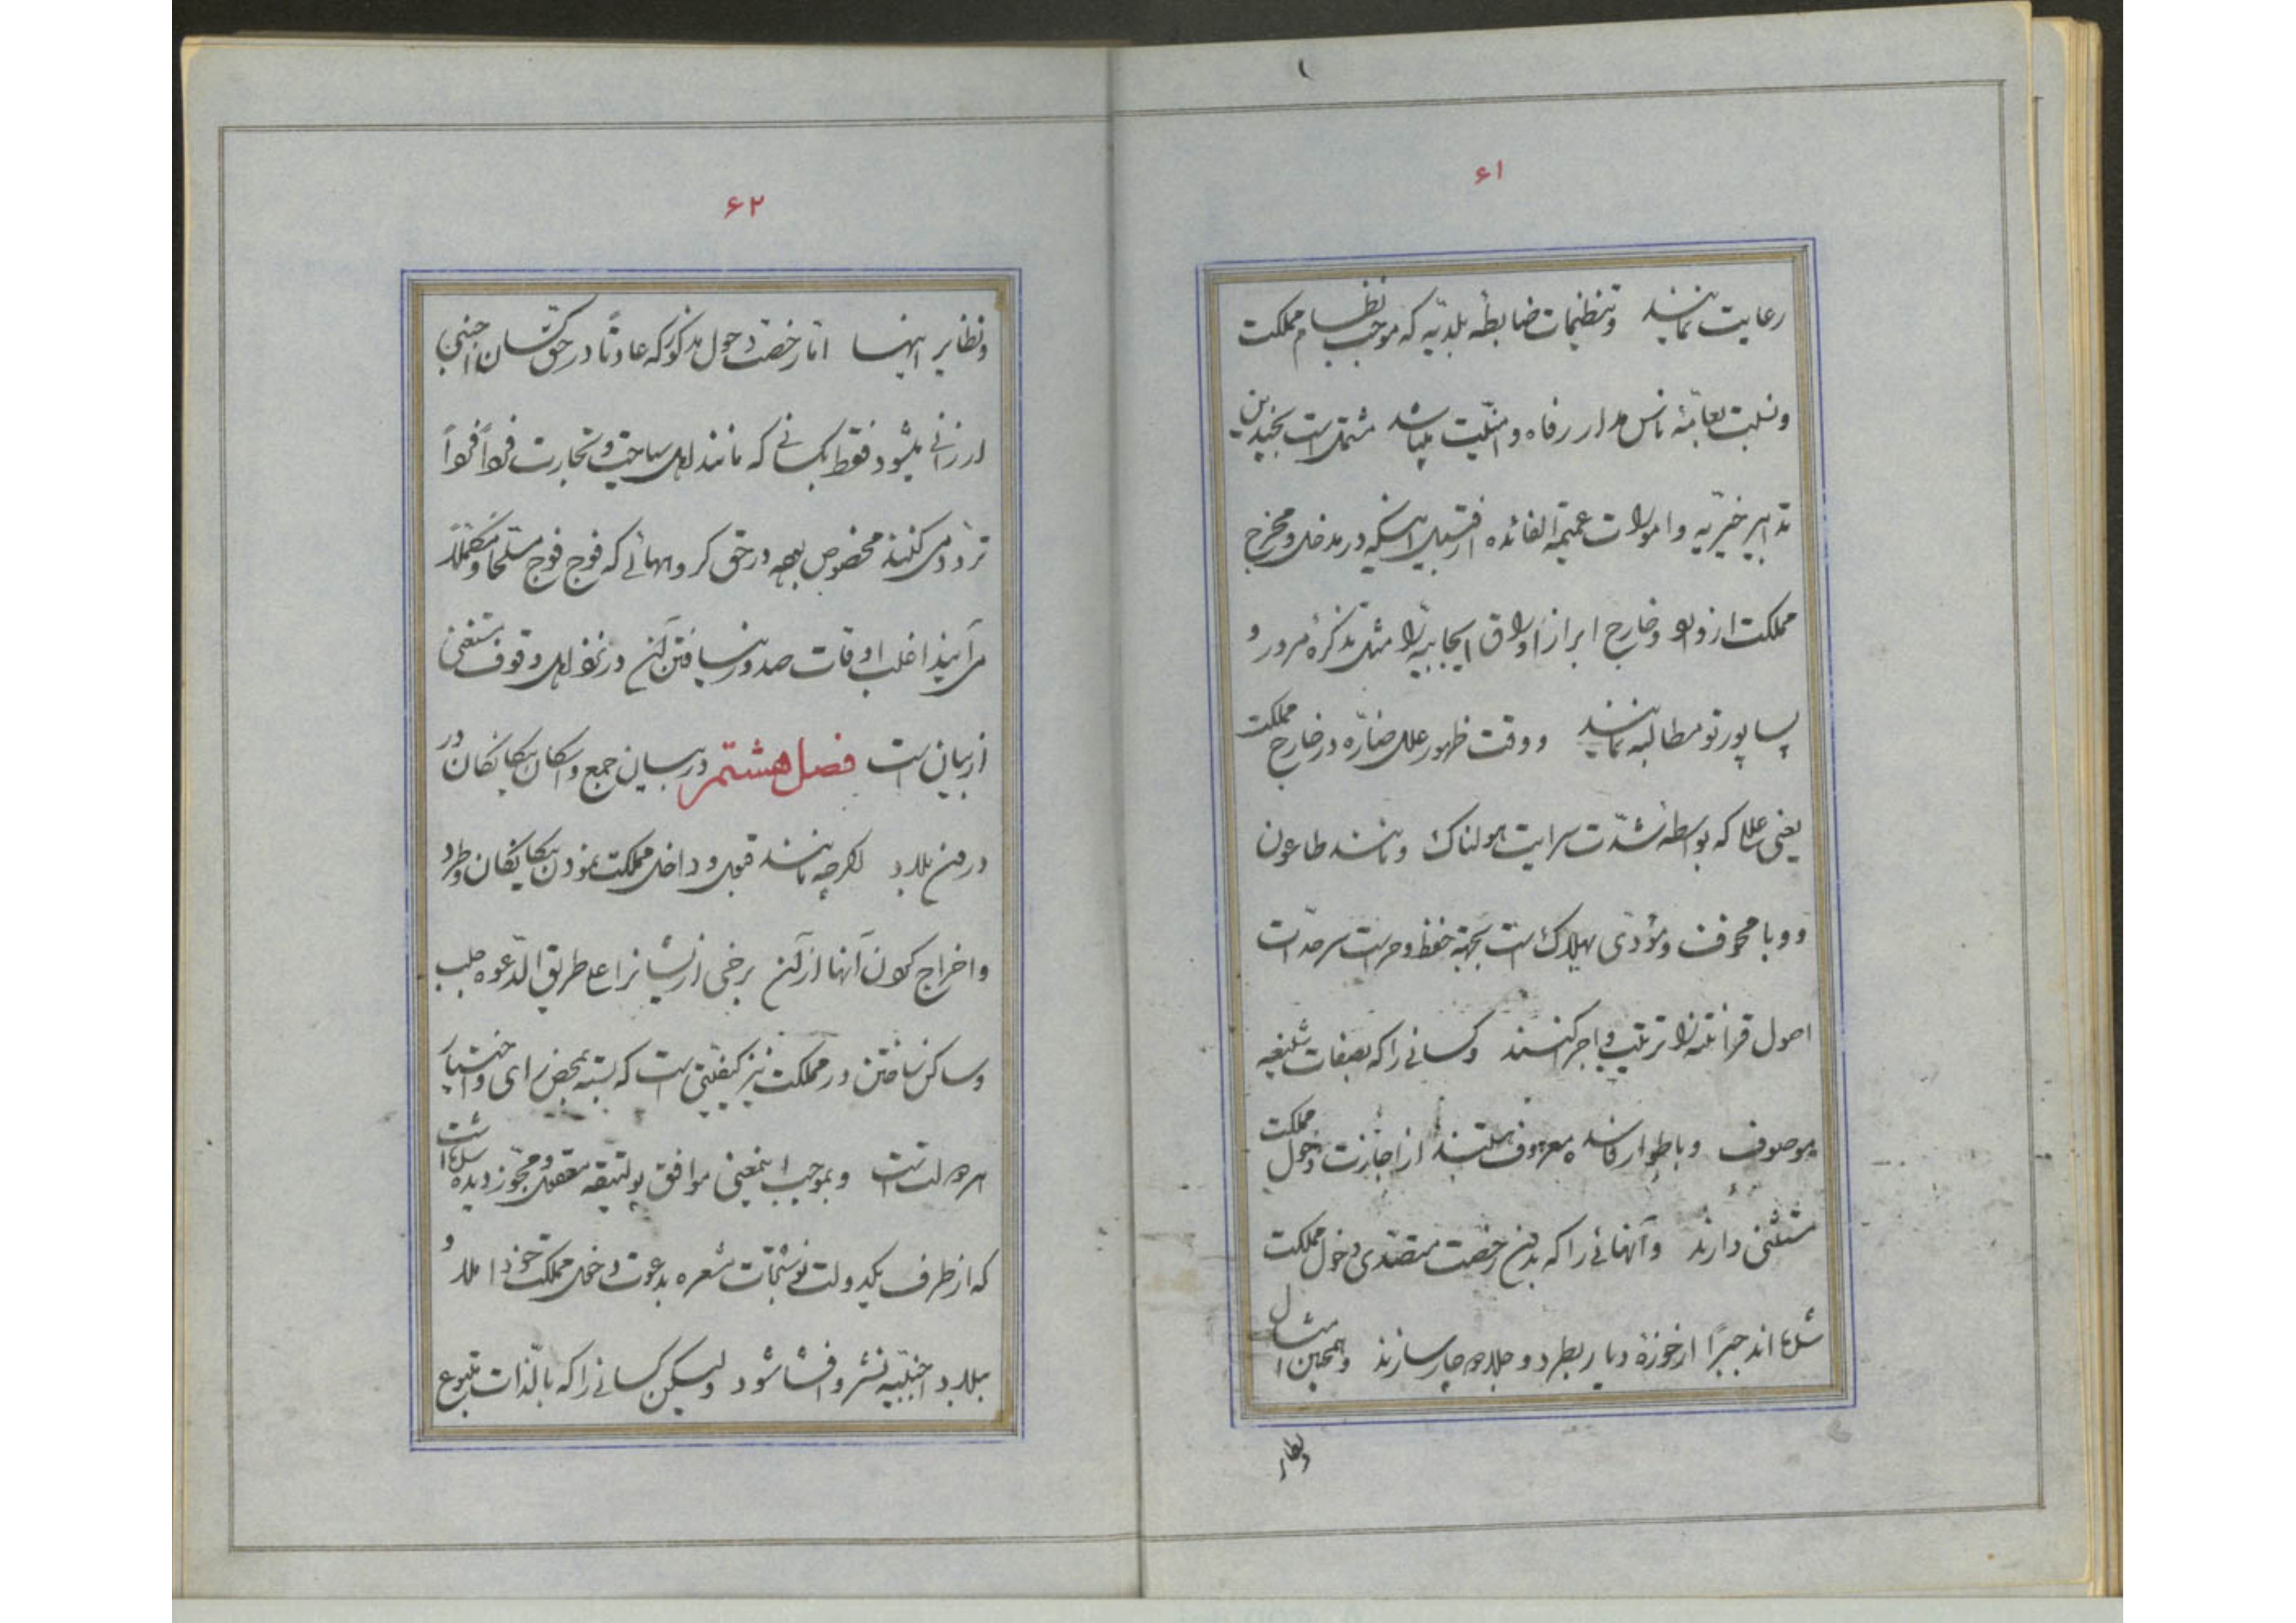 ۶۱
رعایت نمایند و تنظیمات ضابطهٔ بلدیّه که موجب نظام مملکت
و نسبت بعامّهٔ ناس مدار رفاه و امنیّت میباشد مشتمل است بچندین
تدابیر خیریّه و امورات عمیمة الفائده از قبیل اینکه در مدخل و مخرج
مملکت از وارد و خارج ابراز اوراق ایجابیّه را مثل تذکرهٔ مرور و
پساپورتو مطالبه نمایند و وقت ظهور علل ضارّه در خارج مملکت
یعنی عللی که بواسطه شدّت سرایت هولناک و مانند طاعون
و وبا مخوف و مؤدّی بهلاک است بجهة حفظ و حراست سرحدّات
اصول قرانتنه را ترتیب و اجرا کنند و کسانی را که بصفات شنیعه
موصوف و باطوار فاسده معروف هستند از اجازت دخول مملکت
مستثنی دارند و آنهائی را که بدون رخصت متصدّی دخول مملکت
شده اند جبرًا از حوزهٔ دیار بطرد و جلا دچار سازند و همچنین امثال
ونظایر
۶۲
و نظایر اینها امّا رخصت دخول مذکور که عادتًا در حقّ کسان اجنبی
ارزانی میشود فقط بکسانی که مانند اهل سیاحت و تجارت فردًا فردًا
تردّد می کنند مخصوص بوده در حق گروههائی که فوج فوج مسلّحًا و مکمّلاً
می آیند اغلب اوقات صدور نیافتن آن در نزد اهل وقوف مستغنی
از بیان است فصل هشتم در بیان جمع و اسکان بیگانگان در
درون بلاد اگرچه مانند قبول و داخل مملکت نمودن بیگانگان و طرد
و اخراج کردن آنها از آن برخی از ایشانرا علی طریق الدّعوه جلب
و ساکن ساختن در مملکت نیز کیفیّتی است که بسته بمحض رای و اختیار
هر دولت است و بموجب اینمعنی موافق پولتیقه معقول و مجوّز دیده شده است
که از طرف یکدولت نوشتجات مشعره بدعوت دخول مملکت خود املا و
ببلاد اجنبیّه نشر و افشا شود ولیکن کسانی را که بالّذات متبوع